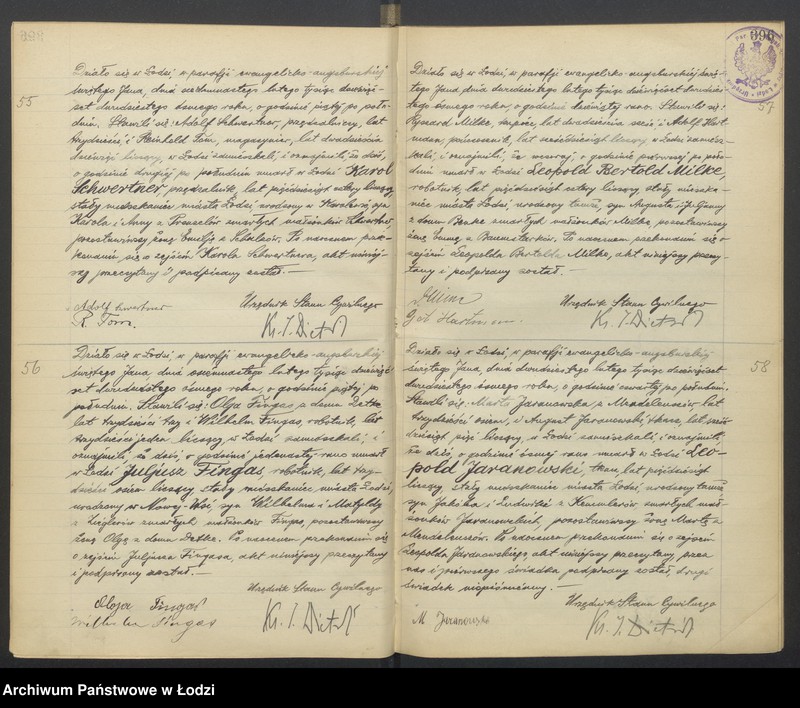 398
55
Działo się w Łodzi, w parafji ewangelicko-augsburskiej
świętego Jana, dnia siedemnastego lutego tysiąc dziewięć-
set dwudziestego ósmego roku, o godzinie piątej po połu-
dniu. Stawili się: Adolf Schwertner, przędzalniczy, lat
trzydzieści i Reinhold Tom, magazynier, lat dwadzieścia
dziewięć liczący, w Łodzi zamieszkali, i oznajmili, że dziś,
o godzinie drugiej po południu umarł w Łodzi Karol
Schwertner, przędzalnik, lat pięćdziesiąt cztery liczący,
stały mieszkaniec miasta Łodzi urodzony w Karolewie, syn
Karola i Anny z zmarłych małżonków Schwertner,
pozostawiwszy żonę Emilję z Schulców. Po naocznem prze-
konaniu się o zejściu Karola Schwertnera, akt niniej-
szy przeczytany i podpisany został. —
Adolf Schwertner
R. Tom.
Urzędnik Stanu Cywilnego
Ks. J. Dietrich
56
Działo się w Łodzi, w parafji ewangelicko-augsburskiej
świętego Jana, dnia osiemnastego lutego tysiąc dziewięć-
set dwudziestego ósmego roku, o godzinie piątej po
południu. Stawili się: Olga Fingas z domu Detke,
lat trzydzieści trzy i Wilhelm Fingas, robotnik, lat
trzydzieści jeden liczący w Łodzi zamieszkali, i
oznajmili, że dziś, o godzinie jedenastej rano umarł
w Łodzi Juljusz Fingas, robotnik, lat trzy-
dzieści osiem liczący stały mieszkaniec miasta Łodzi,
urodzony w Nowej-Wsi, syn Wilhelma i Matyldy
z Zieglerów zmarłych małżonków Fingas, pozostawiwszy
żonę Olgę z domu Detke. Po naocznem przekonaniu się
o zejściu Juljusza Fingasa, akt niniejszy przeczytany
i podpisany został. —
Olga Fingas
Wilhelm Fingas
Urzędnik Stanu Cywilnego
Ks. J. Dietrich
390
57
Działo się w Łodzi, w parafji ewangelicko-augsburskiej świę-
tego Jana, dnia dwudziestego lutego tysiąc dziewięćset dwudzies-
tego ósmego roku, o godzinie dziesiątej rano. Stawili się:
Ryszard Milke, lat dwadzieścia sześć, i Adolf Hart-
man, pończosznik, lat sześćdziesiąt liczący w Łodzi zamiesz-
kali, i oznajmili, że wczoraj, o godzinie pierwszej po połu-
dniu umarł w Łodzi Leopold Bertold Milke,
robotnik, lat pięćdziesiąt cztery liczący, stały mieszka-
niec miasta Łodzi urodzony tamże, syn Augusta i Juljanny
z domu Benke zmarłych małżonków Milke, pozostawiwszy
żonę Emmę z Baumsterków. Po naocznem przekonaniu się o
zejściu Leopolda Bertolda Milke, akt niniejszy przeczy-
tany i podpisany został. —
Hartman
Urzędnik Stanu Cywilnego
Ks. J. Dietrich
58
Działo się w Łodzi, w parafji ewangelicko-augsburskiej
świętego Jana, dnia dwudziestego lutego tysiąc dziewięćset
dwudziestego ósmego roku, o godzinie czwartej po południu.
Stawili się: Marta Jaranowska z Mendelensów, lat
trzydzieści osiem, i August Jaranowski, tkacz, lat
pięć liczący, w Łodzi zamieszkali i oznajmili,
że dziś, o godzinie ósmej rano umarł w Łodzi Leo-
pold Jaranowski, tkacz, lat pięćdziesiąt
liczący, stały mieszkaniec miasta Łodzi, urodzony tamże
syn Jakóba i Ludwiki z zmarłych mał-
żonków Jaranowskich, pozostawiwszy żonę Martę z
Mendelensów. Po naocznem przekonaniu się o zejściu
Leopolda Jaranowskiego, akt niniejszy przeczytany, przez
nas i pierwszego świadka podpisany został, drugi
świadek niepiśmienny. —
M Jaranowska
Urzędnik Stanu Cywilnego
Ks. J. Dietrich
Archiwum Państwowe w Łodzi